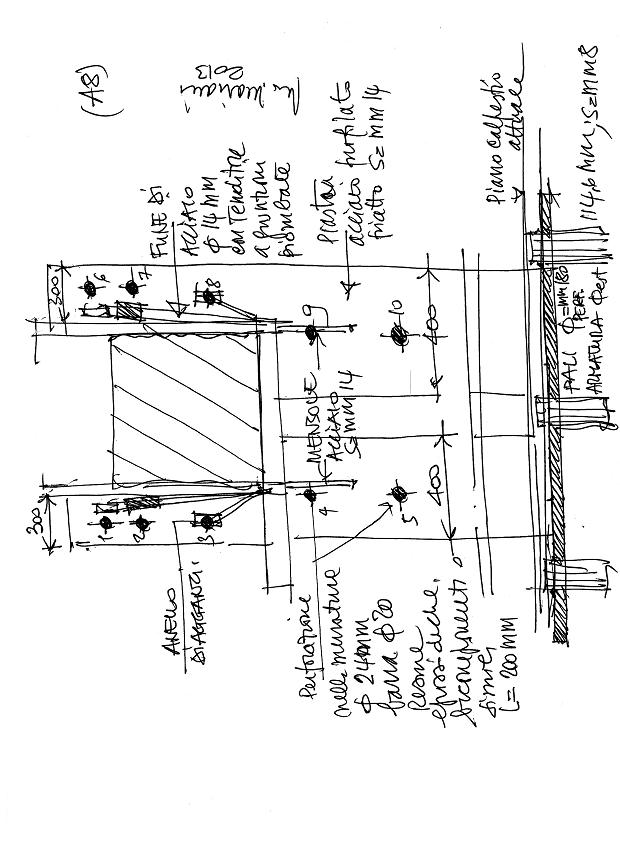 (A8)
2013
FUNE DI
ACCIAIO
Φ 14 MM
con Tenditore
piombate
Piastra
acciaio profilato
S= MM 14
Piano calpestio
attuale
300
6
7
8
9
10
400
MENSOLE
ACCIAIO
S= MM 14
300
1
2
3
4
5
400
ANELLO
DI AGGANCI.
Perforazione
nelle murature
Φ 24 MM
barra Φ 20
Resine
epossidiche,
bicomponenti o
simili,
L= 200 MM
PALI Φ= MM 180
PERF.
ARMATURA Φest 114,6 MM, S= MM 8